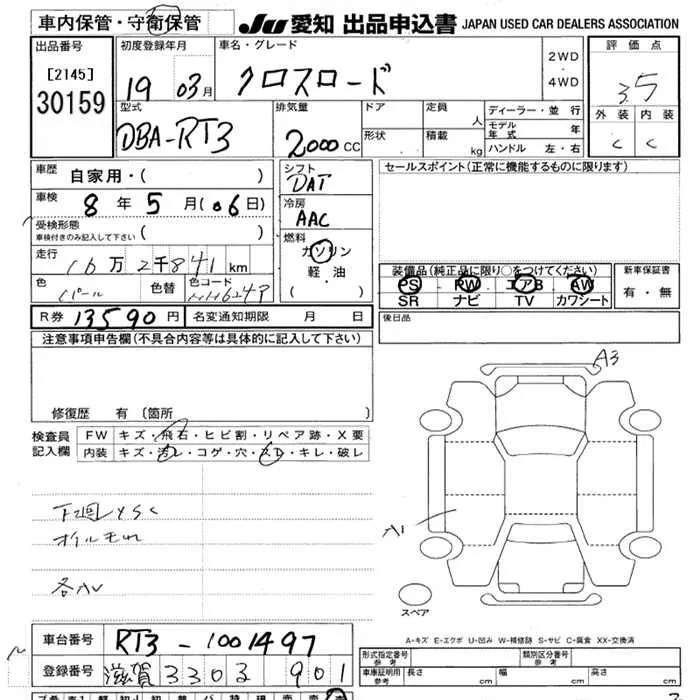 車内保管・守衛保管
JU 愛知 出品申込書 JAPAN USED CAR DEALERS ASSOCIATION
出品番号 初度登録年月 車名・グレード 評価点
[2145] 19 03月 クロスロード 2WD・4WD 3.5
30159 外装 内装
型式 排気量 ドア 定員 人 ディーラー・並行 C C
DBA-RT3 2000CC 形状 積載 kg モデル年式 年
ハンドル 左・右
車歴 自家用・( ) シフト セールスポイント(正常に機能するものに限ります)
DAT
車検 8年5月(06日) 冷房
受検形態 AAC
車検付きのみ記入して下さい ( )
走行 16万2千841km 燃料
ガソリン
色 パール 色替 色コード 軽・油
( )
装備品(純正品に限り○をつけてください) 新車保証書
PS PW エアB AW 有・無
SR ナビ TV カワシート
R券 13590円 名変通知期限 月 日 後日品
注意事項申告欄(不具合内容等は具体的に記入して下さい)
A3
修復歴 有(箇所
検査員 FW キズ・飛石・ヒビ割・リペア跡・X要
記入欄 内装 キズ・汚レ・コゲ・穴・スレ・キレ・破レ
下廻りサビ
オイルモレ
A1
スペア
A-キズ E-エクボ U-凹み W-補修跡 S-サビ C-腐食 XX-交換済
車台番号 RT3-1001497
登録番号 滋賀 330ま 901
形式指定番号 参考 類別区分番号 参考
車庫証明用 参考 長さ cm 幅 cm 高さ cm